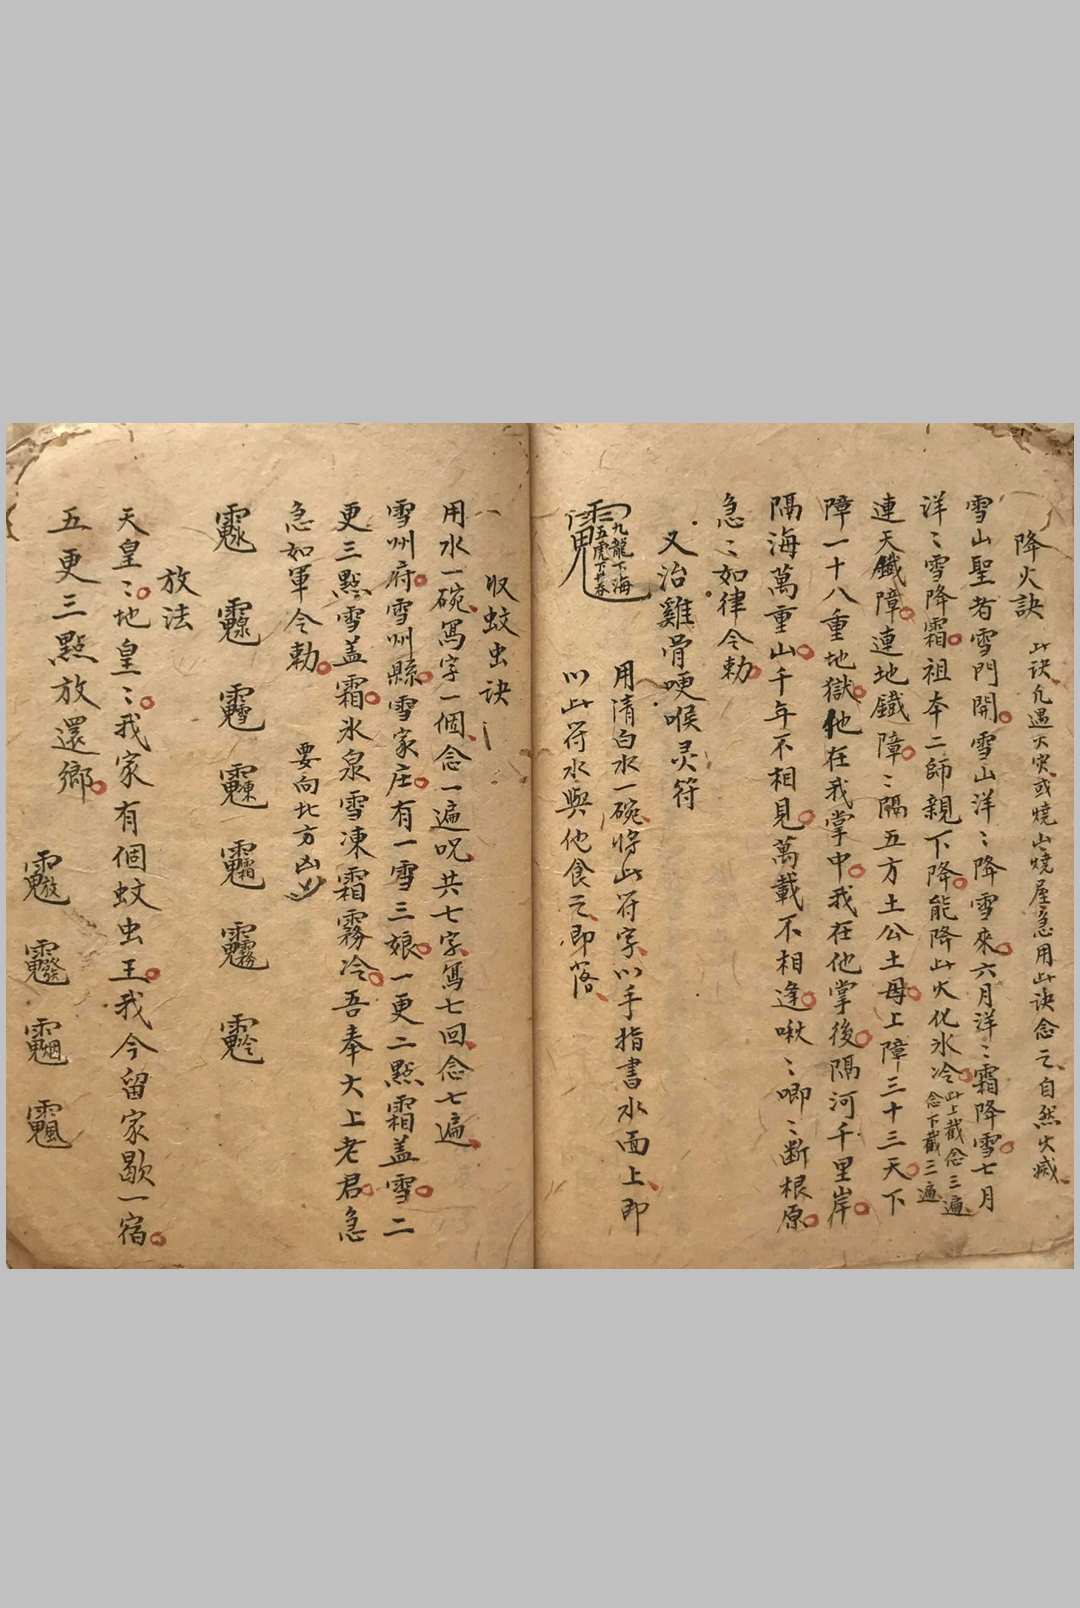 降火訣 此訣凡遇天灾或燒山燒屋急用此訣念之自然火滅
雪山聖者雪門開雪山洋〻降雪來六月洋〻霜降雪七月
洋〻雪降霜祖本二師親下降能降此火化氷冷此上截念三遍
念下截三遍
連天鐵障連地鐵障〻隔五方土公土母上障三十三天下
障一十八重地獄他在我掌中我在他掌後隔河千里岸
隔海萬重山千年不相見萬載不相逢啾〻唧〻断根原
急〻如律令勅
又治雞骨哽喉灵符
用清白水一碗将此符字以手指書水面上即
以此符水與他食之即落
九龍下海
五虎下
收蚊虫訣
用水一碗寫字一個念一遍呪共七字寫七回念七遍
雪州府雪州縣雪家庄有一雪三娘一更二點霜盖雪二
更三點雪盖霜氷泉雪凍霜霧冷吾奉大上老君急
急如軍令勅 要向北方凶
放法
天皇〻地皇〻我家有個蚊虫王我今留家歇一宿
五更三點放還鄉